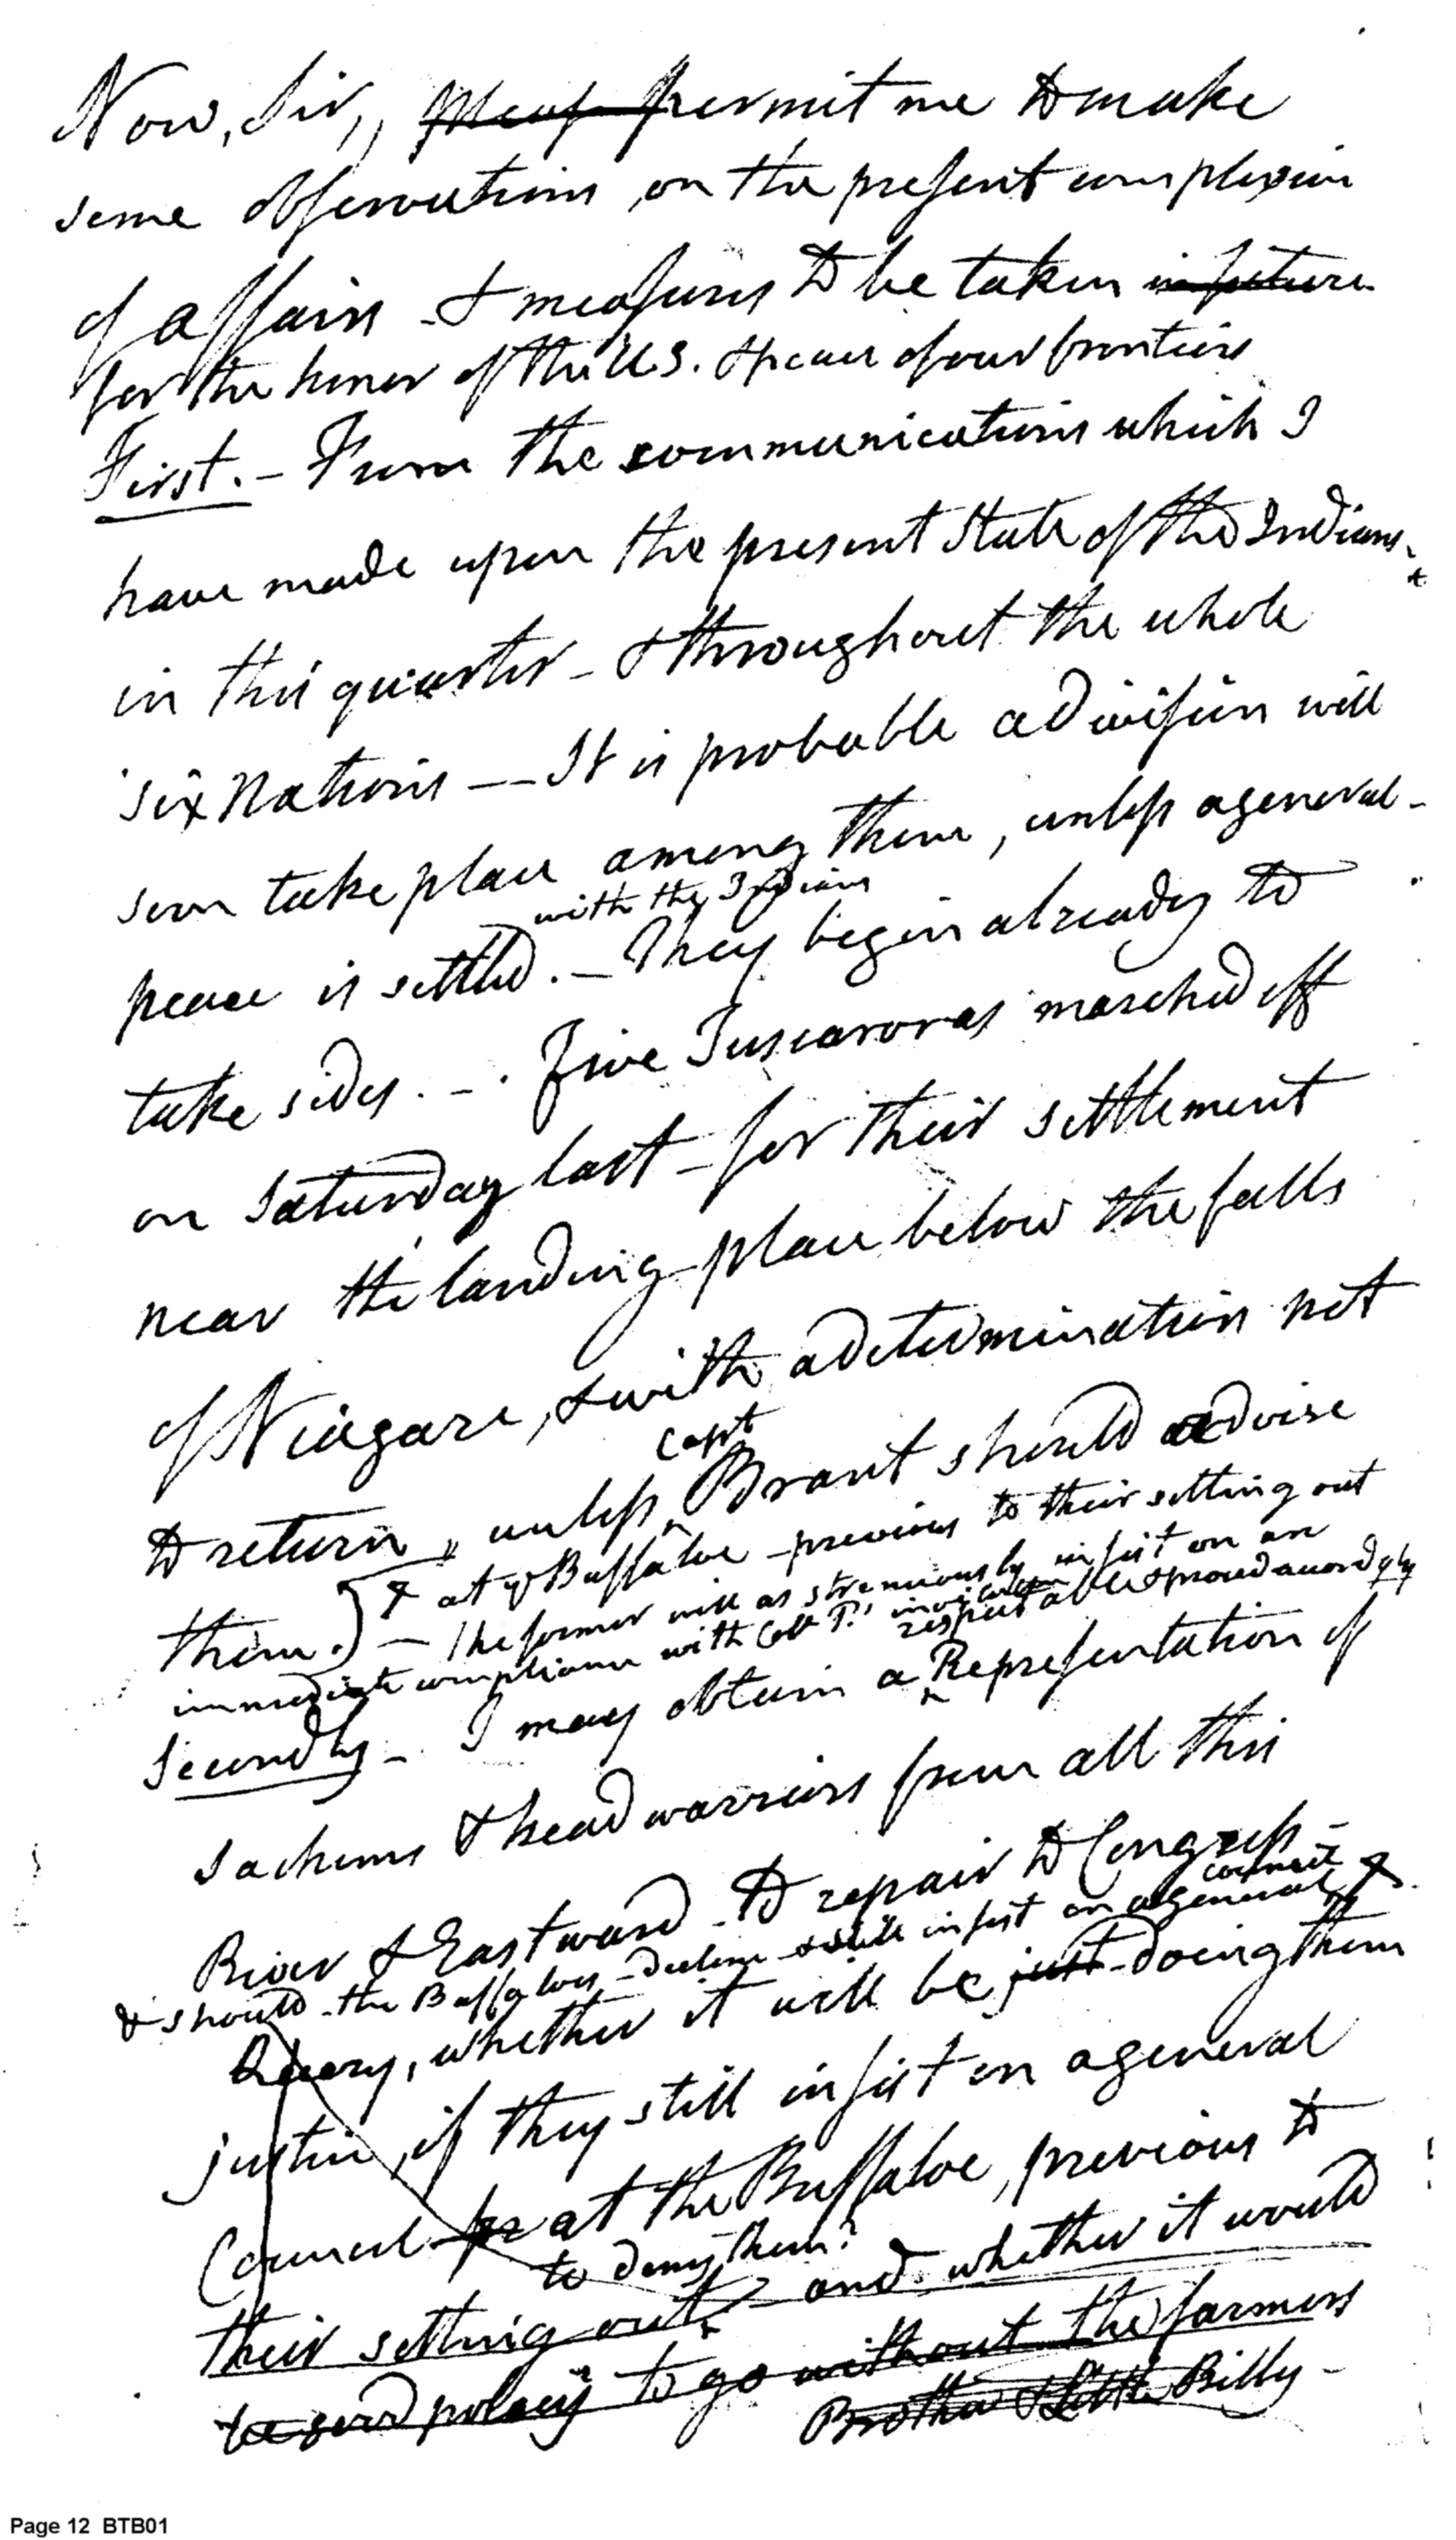 Now, Sir, pleas permit me to make
some observations on the present complexion
of affairs & measures to be taken in future
for the honor of the U S. & peace of our frontiers
First. - From the communications which I
have made upon the present state of the Indians
in this quarter - & throughout the whole
six Nations -- It is probable a division will
soon take place among them, unless a general
with the Indians
peace is settled. - They begin already to
take sides. - . Five Tuscaroras marched off
on Saturday last - for their settlement
near the landing place below the falls
of Niagara, & with a determination not
Capt
to return, unless Brant should advise
& at ye Buffaloe - previous to their setting out
them. - The former will as strenuously insist on an
immediate compliance with Col. P.'s invitation
respectable & proceed accordgly
Secondly - I may obtain a Representation of
sachems & head warriors from all this
River & Eastward - to repair to Congress -
council
& should the Buffaloes - decline & still insist on a general
Query, whether it will be just doing them
justice, if they still insist on a general
Council at the Buffaloe, previous to
to deny them?
their setting out - and whether it would
be good policy to go without the farmers
Brother & Little Billy -
Page 12 BTB01